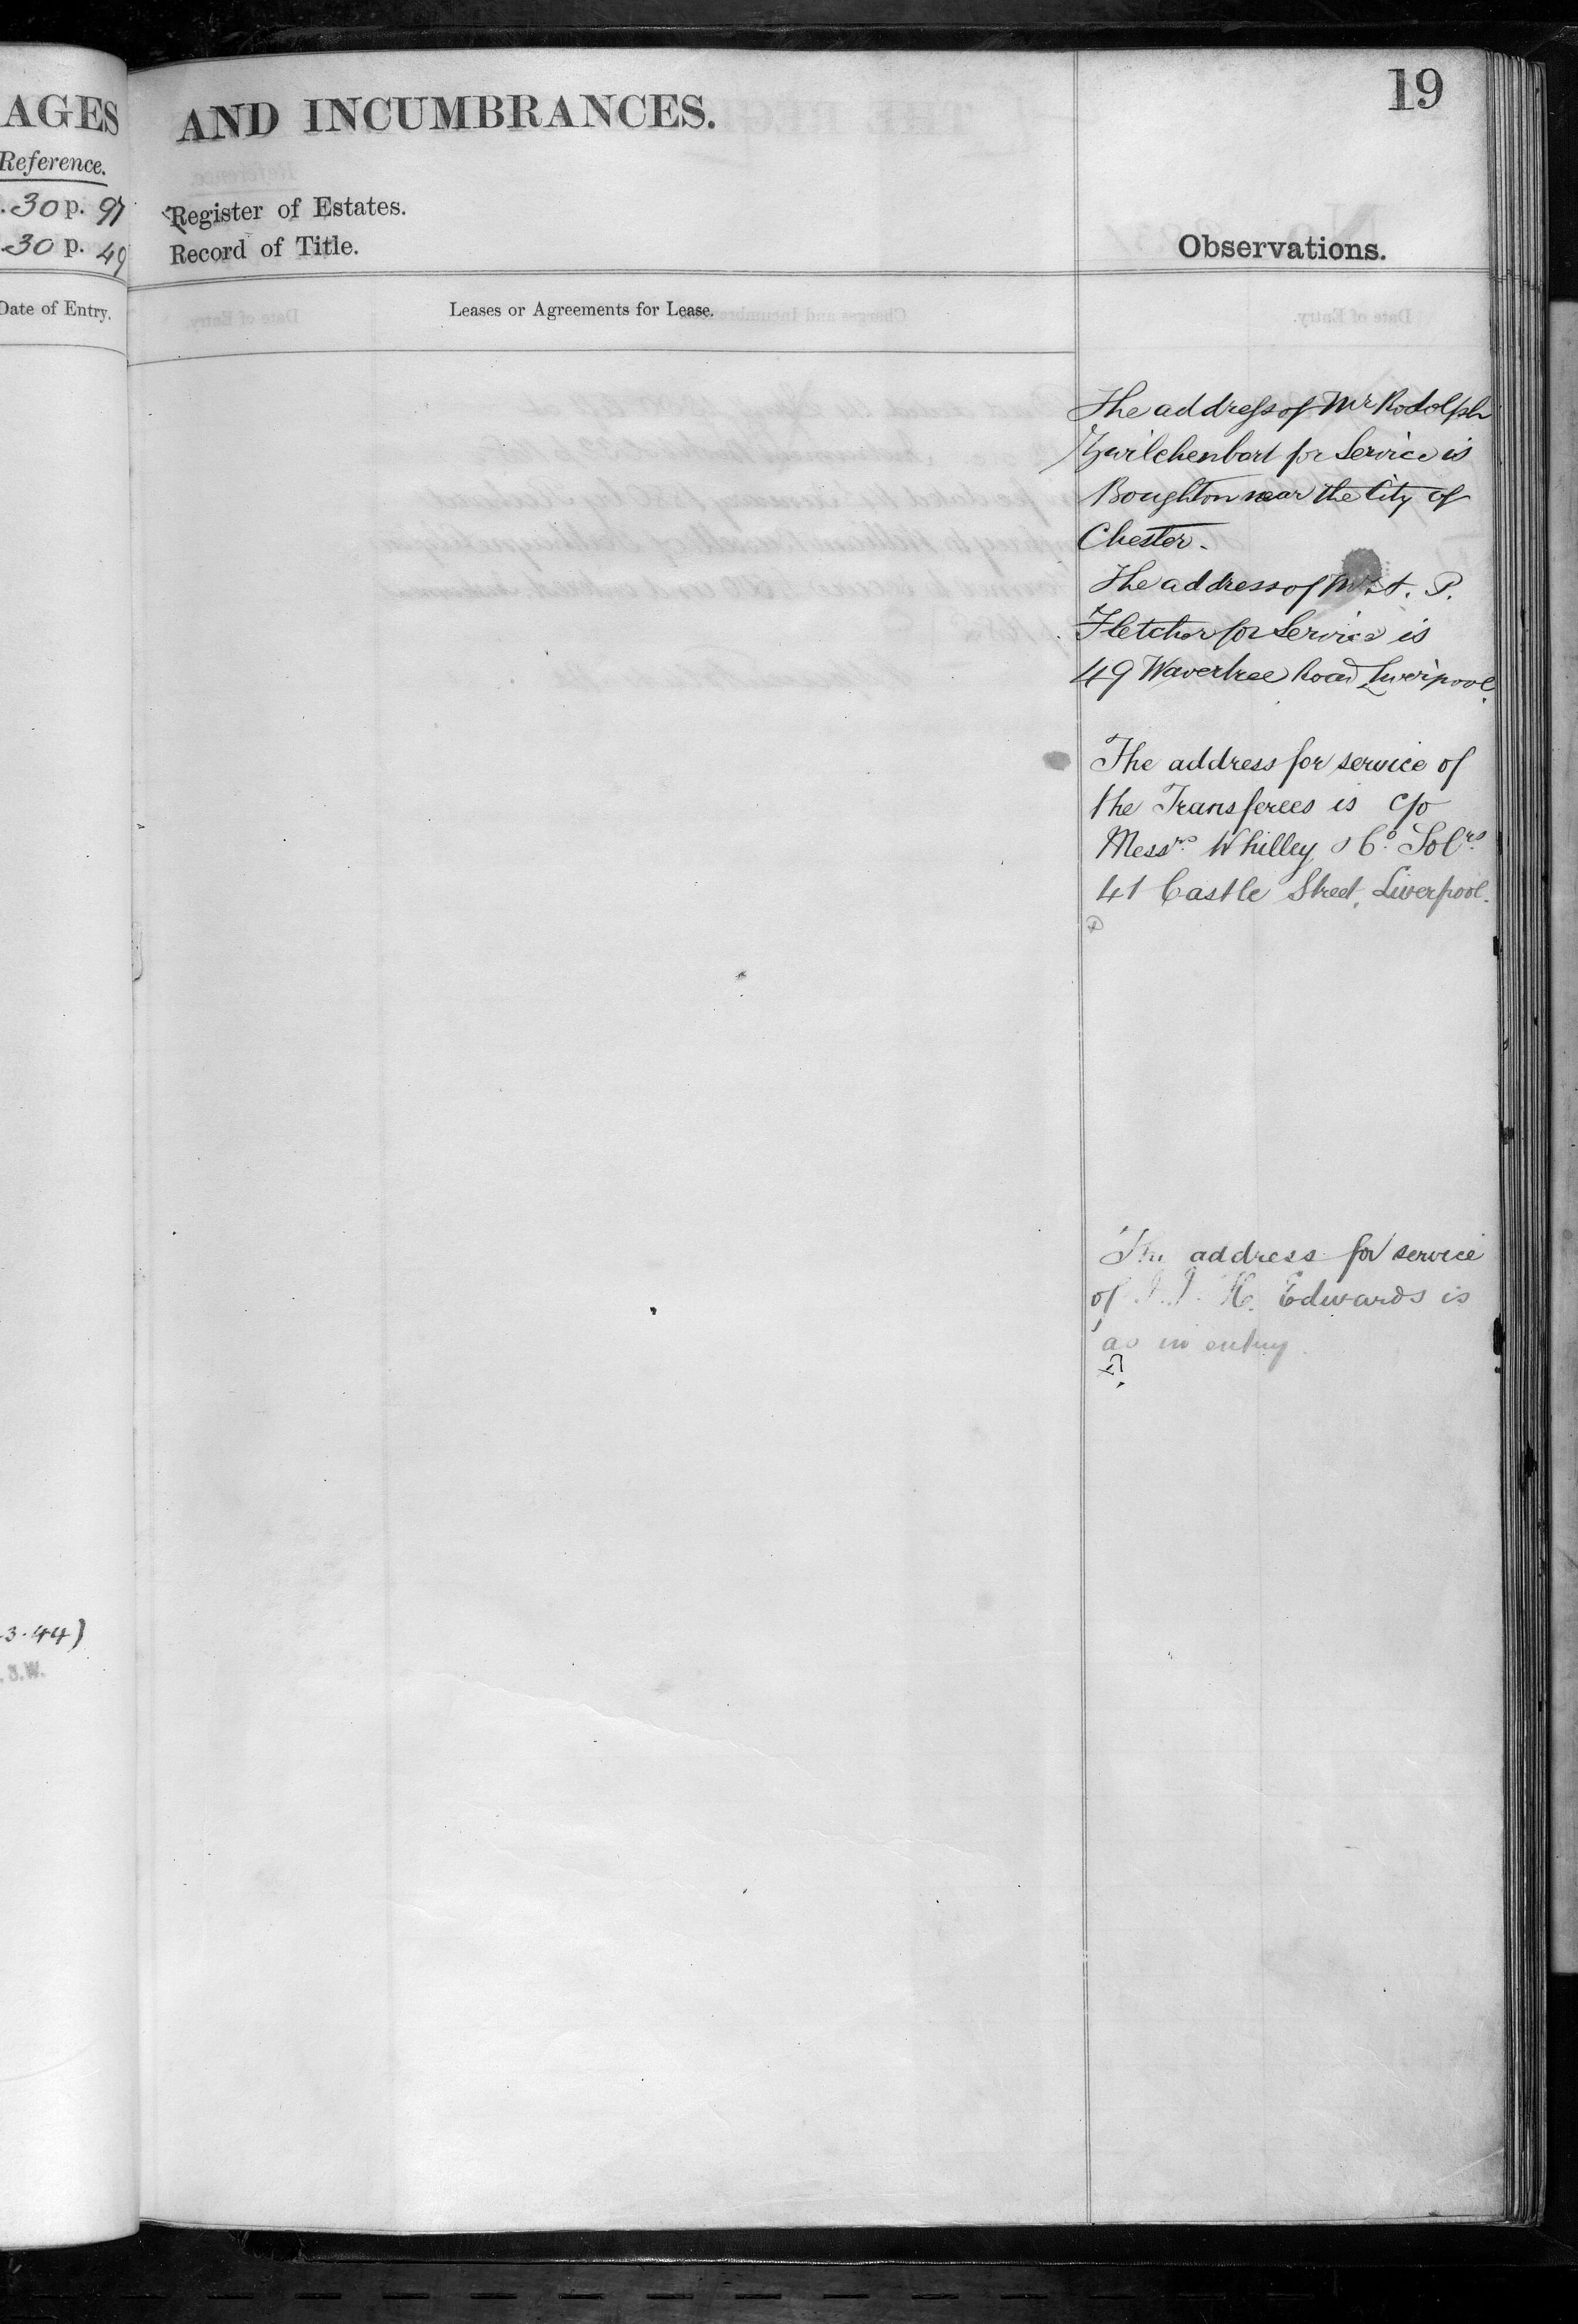 AGES
Reference.
.30 p. 97
.30 p. 49
Date of Entry.
3.44)
.S.W.
19
AND INCUMBRANCES.
Register of Estates.
Record of Title.
Observations.
Leases or Agreements for Lease.
The address of Mr Rodolph
Zwilchenbart for Service is
Boughton near the City of
Chester.
The address of P.
Fletcher for Service is
49 Wavertree Road Liverpool.
The address for service of
the Transferees is c/o
Messrs. Whitley & Co. Solrs.
41 Castle Street, Liverpool.
The address for service
of H. Edwards is
as in entry.